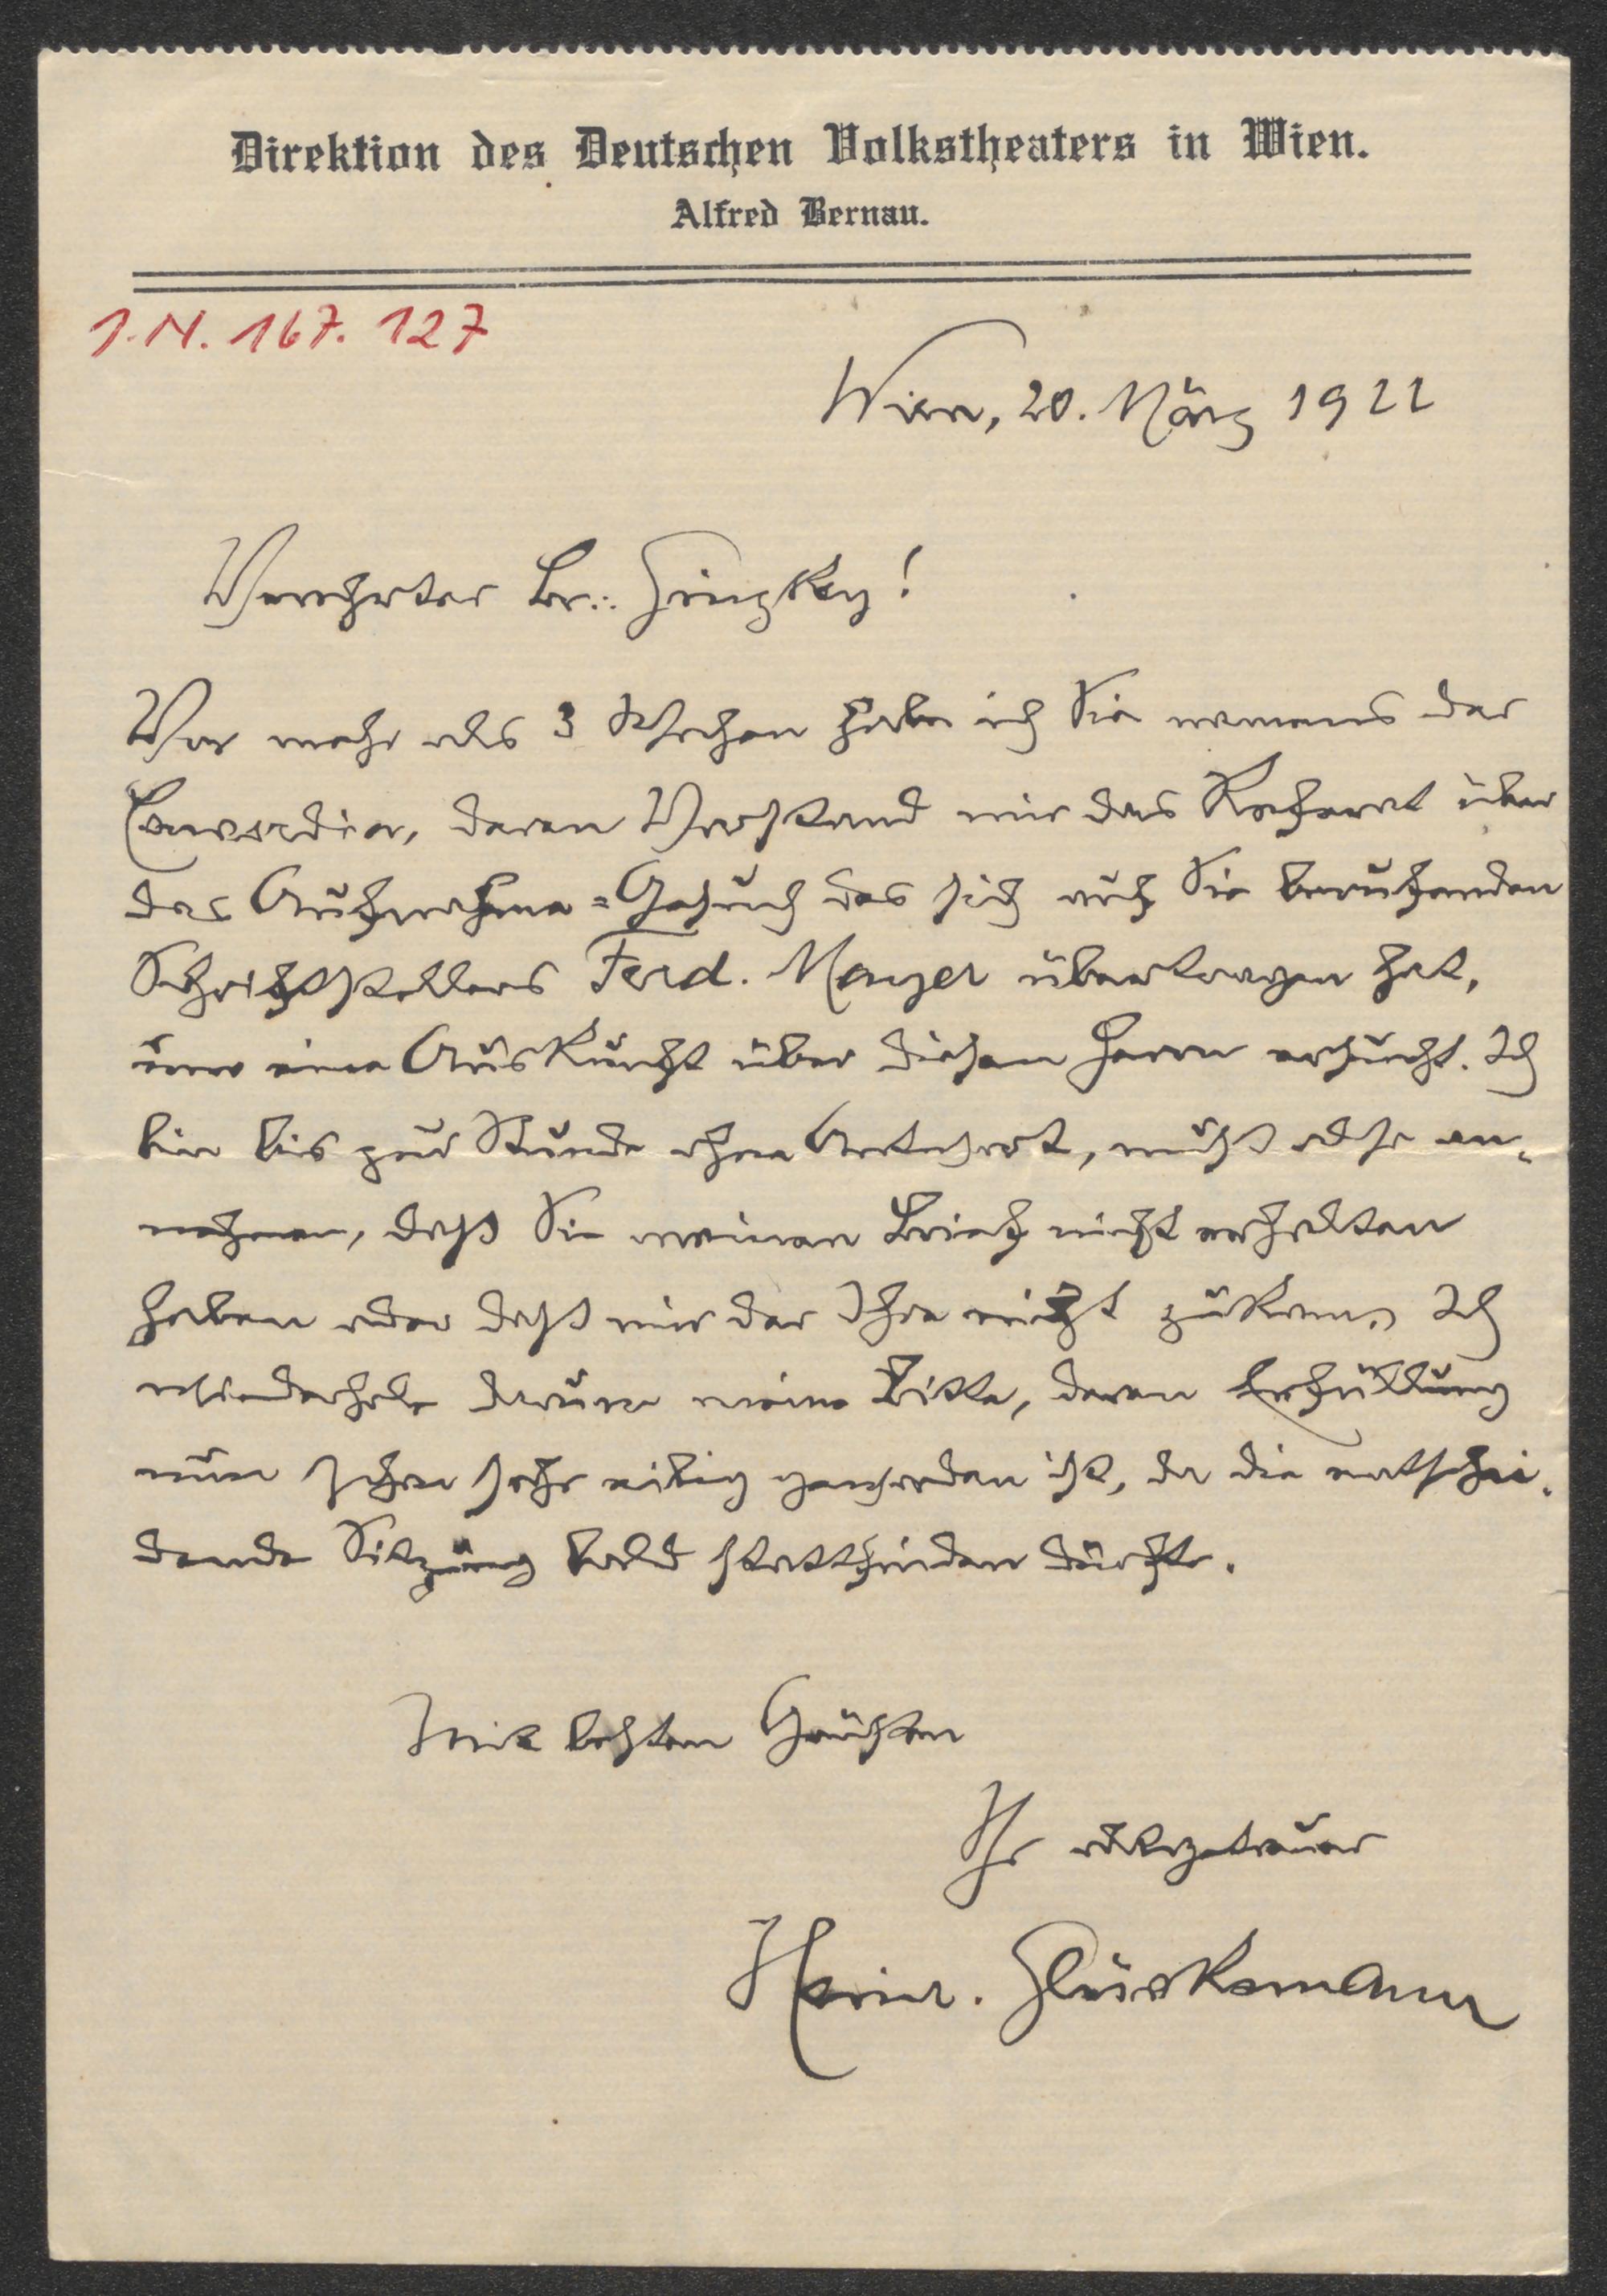 Direktion des Deutschen Volkstheaters in Wien.
Alfred Bernau.
I.N. 167.127
Wien, 20. März 1922
Verehrter Br∴ Ginzkey!
Vor mehr als 3 Wochen habe ich Sie namens der
Concordia, deren Vorstand mir das Referat über
das Aufnahme=Gesuch des sich auf Sie berufenden
Schriftstellers Ferd. Mayer übertragen hat,
um eine Auskunft über diesen Herrn ersucht. Ich
bin bis zur Stunde ohne Antwort, muß also an-
nehmen, daß Sie meinen Brief nicht erhalten
haben oder daß mir der Ihre nicht zukam. Ich
wiederhole darum meine Bitte, deren Erfüllung
nun schon sehr nötig geworden ist, da die entschei-
dende Sitzung bald stattfinden dürfte.
Mit besten Grüßen
Ihr altergetreuer
Heinr. Glücksmann